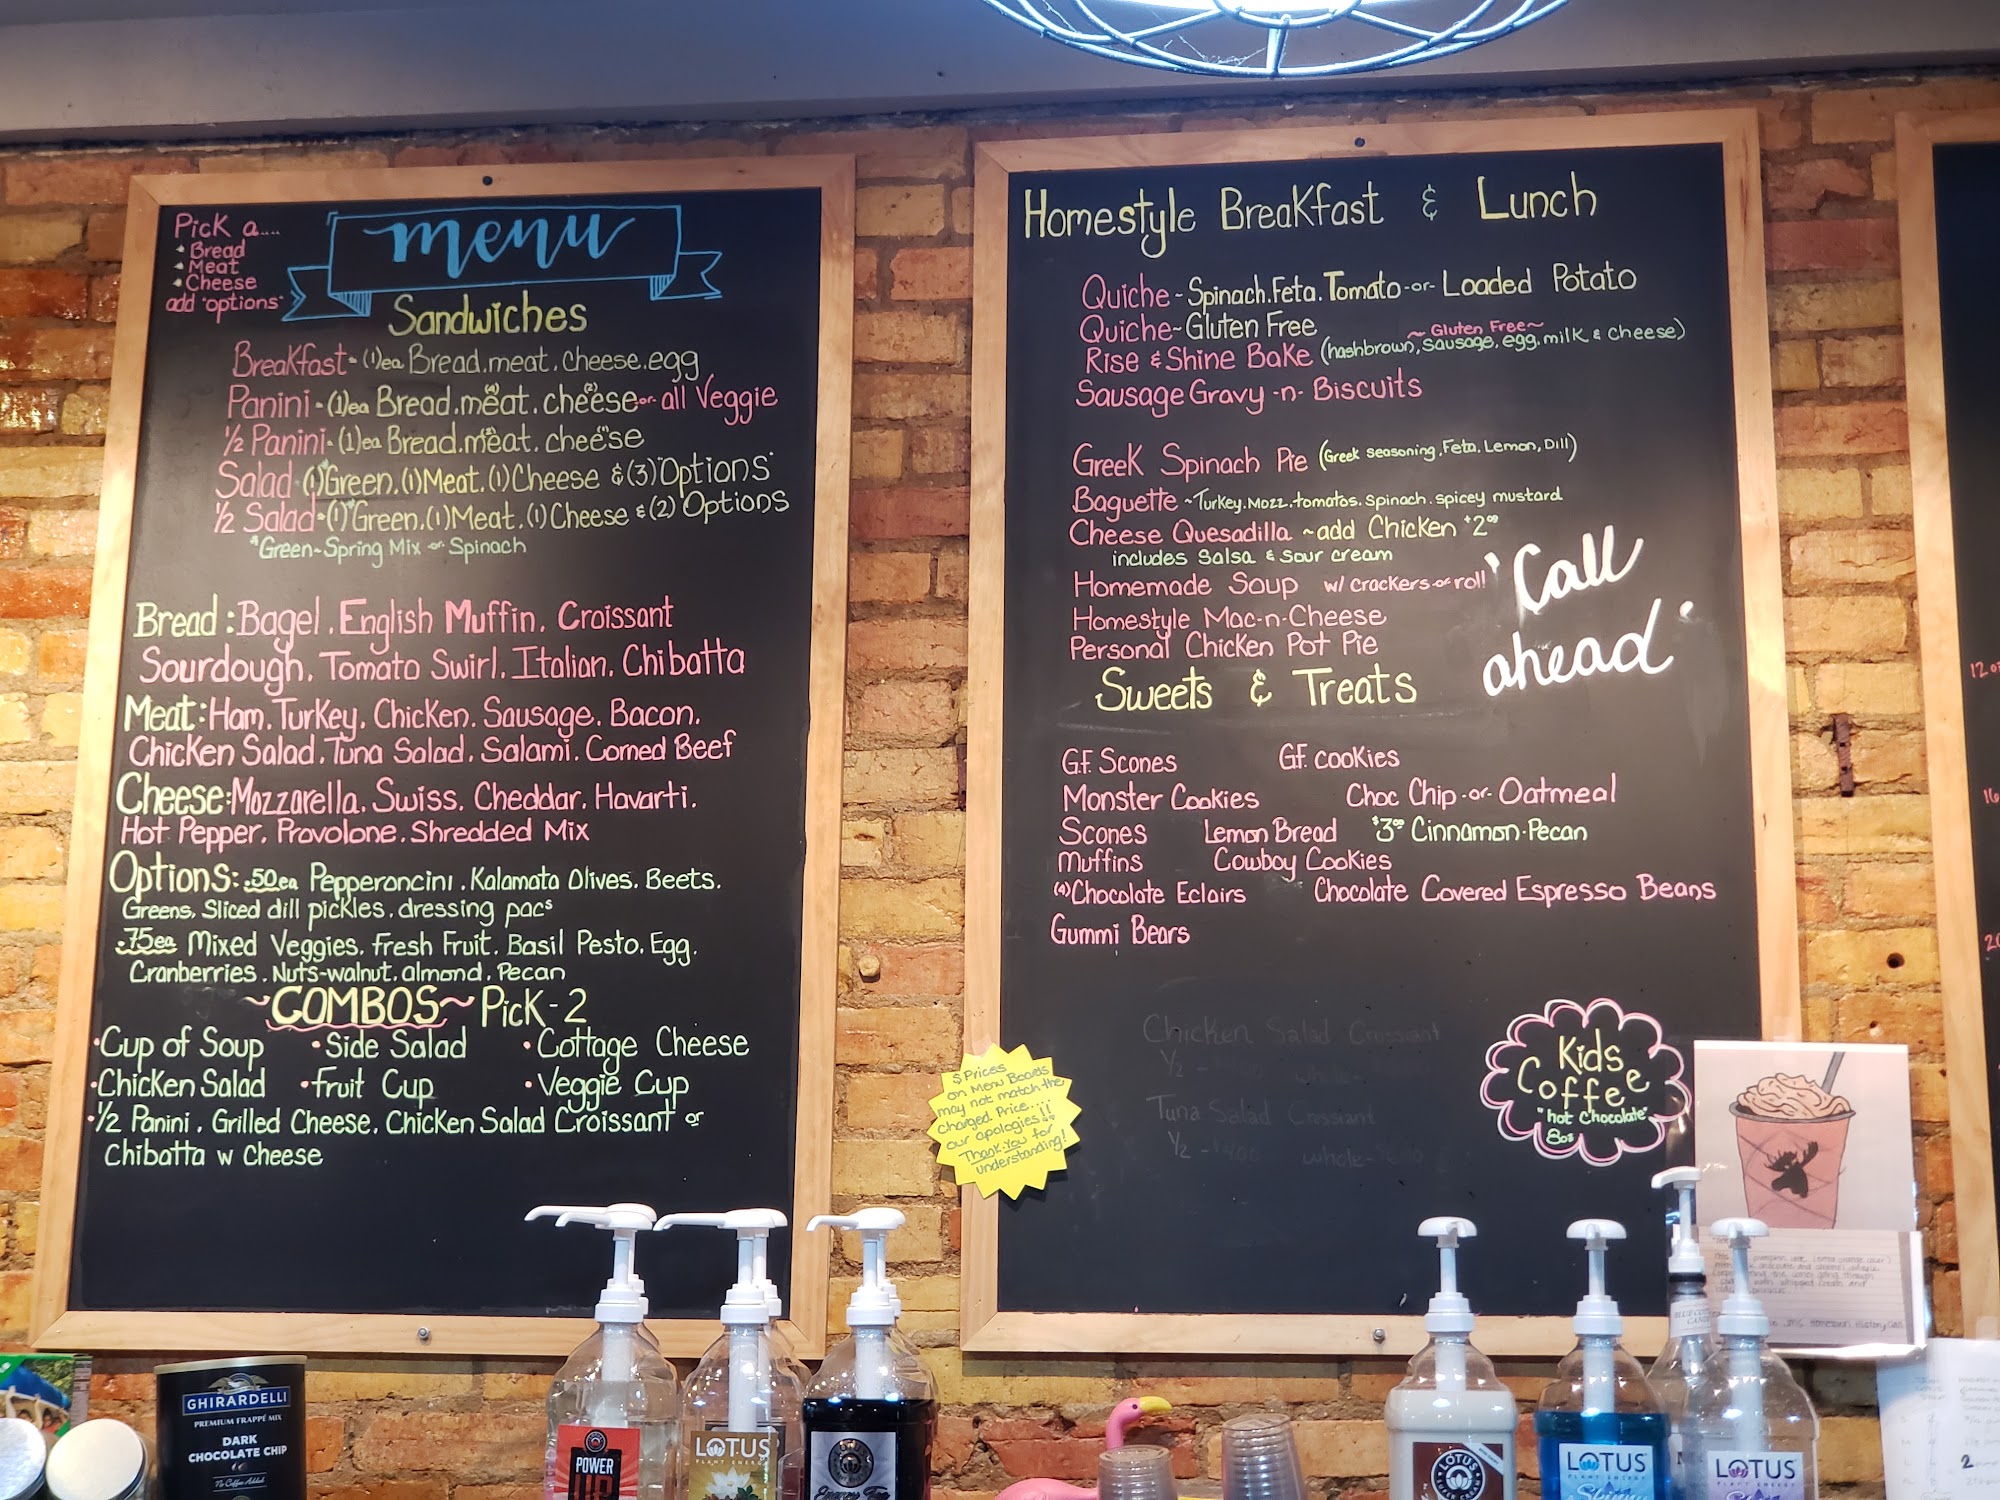 Pick a....
• Bread
• Meat
• Cheese
add "options"
menu
Sandwiches
Breakfast - (1)ea Bread. meat. cheese. egg
Panini - (1)ea Bread. (4) meat. (2) cheese -or- all Veggie
1/2 Panini - (1)ea Bread. meat. cheese
Salad - (1) *Green. (1) Meat. (1) Cheese & (3) "Options"
1/2 Salad - (1) *Green. (1) Meat. (1) Cheese & (2) Options
*Green ~ Spring Mix -or- Spinach
Bread: Bagel. English Muffin. Croissant
Sourdough. Tomato Swirl. Italian. Chibatta
Meat: Ham. Turkey. Chicken. Sausage. Bacon.
Chicken Salad. Tuna Salad. Salami. Corned Beef
Cheese: Mozzarella. Swiss. Cheddar. Havarti.
Hot Pepper. Provolone. Shredded Mix
Options: .50ea Pepperoncini. Kalamata Olives. Beets.
Greens. Sliced dill pickles. dressing pacs
.75ea Mixed Veggies. Fresh Fruit. Basil Pesto. Egg.
Cranberries. Nuts-walnut. almond. Pecan
~COMBOS~ Pick-2
•Cup of Soup •Side Salad •Cottage Cheese
•Chicken Salad •Fruit Cup •Veggie Cup
•1/2 Panini. Grilled Cheese. Chicken Salad Croissant or
Chibatta w Cheese
Homestyle Breakfast & Lunch
Quiche ~ Spinach. Feta. Tomato -or- Loaded Potato
Quiche ~ Gluten Free
~ Gluten Free ~
Rise & Shine Bake (hashbrown, sausage, egg, milk & cheese)
Sausage Gravy -n- Biscuits
Greek Spinach Pie (Greek seasoning, Feta. Lemon, Dill)
Baguette ~ Turkey. Mozz. tomatos. spinach. spicey mustard
Cheese Quesadilla ~ add Chicken $2.00
includes Salsa & Sour cream
Homemade Soup w/ crackers -or- roll
Homestyle Mac-n-Cheese
Personal Chicken Pot Pie
"Call
ahead"
Sweets & Treats
G.F. Scones G.F. cookies
Monster Cookies Choc Chip -or- Oatmeal
Scones Lemon Bread $3.00 Cinnamon-Pecan
Muffins Cowboy Cookies
(4) Chocolate Eclairs Chocolate Covered Espresso Beans
Gummi Bears
Chicken Salad Croissant
1/2 - whole-
Tuna Salad Crossiant
1/2 - $4.00 whole-
$ Prices
on Menu Boards
may not match the
charged Price....
our apologies!!
Thank-You for
understanding!
Kids
Coffee
"hot chocolate"
8oz
12 oz
16
20
GHIRARDELLI
PREMIUM FRAPPÉ MIX
DARK
CHOCOLATE CHIP
No Coffee Added
POWER
UP
LOTUS
PLANT ENERGY
LOTUS
LOTUS
PLANT ENERGY
Skinny
LOTUS
PLANT ENERGY